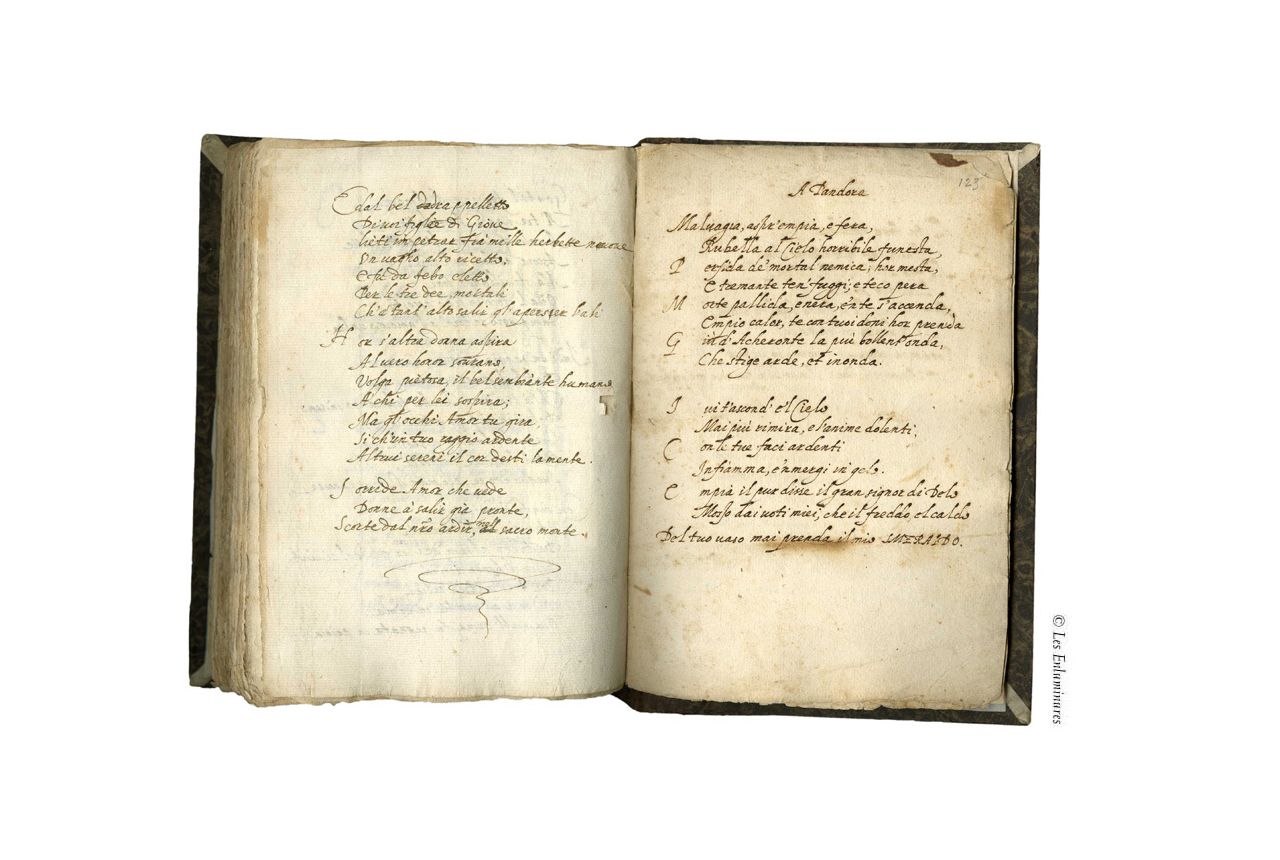 E dal bel drappelletto
Di voi figlie di Giove
lieti impetrar fia mille herbette nuove
Un vagho alto ricetto,
E fu da febo eletto
Per le tre dee, mortali
Ch'e tant' alto salir gl'apersser l'ali
Hor s'altra donna aspira
Al vero honor sourano,
Volga pietosa, il bel sembiante humano
A chi per lei sospira;
Ma gl'occhi Amor tu gira
Si ch'un tuo raggio ardente
Altrui sereni il cor desti la mente.
Sorride Amor che vede
Donne à salir già pronte,
Scorte dal nro ardir, nell sacro monte.
123
A Pandora
Maluagia, aspr' empia, e fera,
Rubella al Cielo horribile funesta,
Perfida de' mortal nemica; hor mesta,
E tremante ten' fuggi; e teco pera
Morte pallida, e nera, e'n te s'accenda,
Empio calor, te con tuoi doni hor prenda
Giù d'Acheronte la più bollent'onda,
Che stige arde, et inonda.
Ivi t'ascond' e'l Cielo
Mai più rimira, e l'anime dolenti,
Con le tue faci ardenti
Infiamma, e'nmergi in gelo.
Empia il pur disse il gran signor di Delo
Mosso dai voti miei, che il freddo, e'l caldo
Del tuo vaso mai prenda il mio SMERALDO.
© Les Enluminures